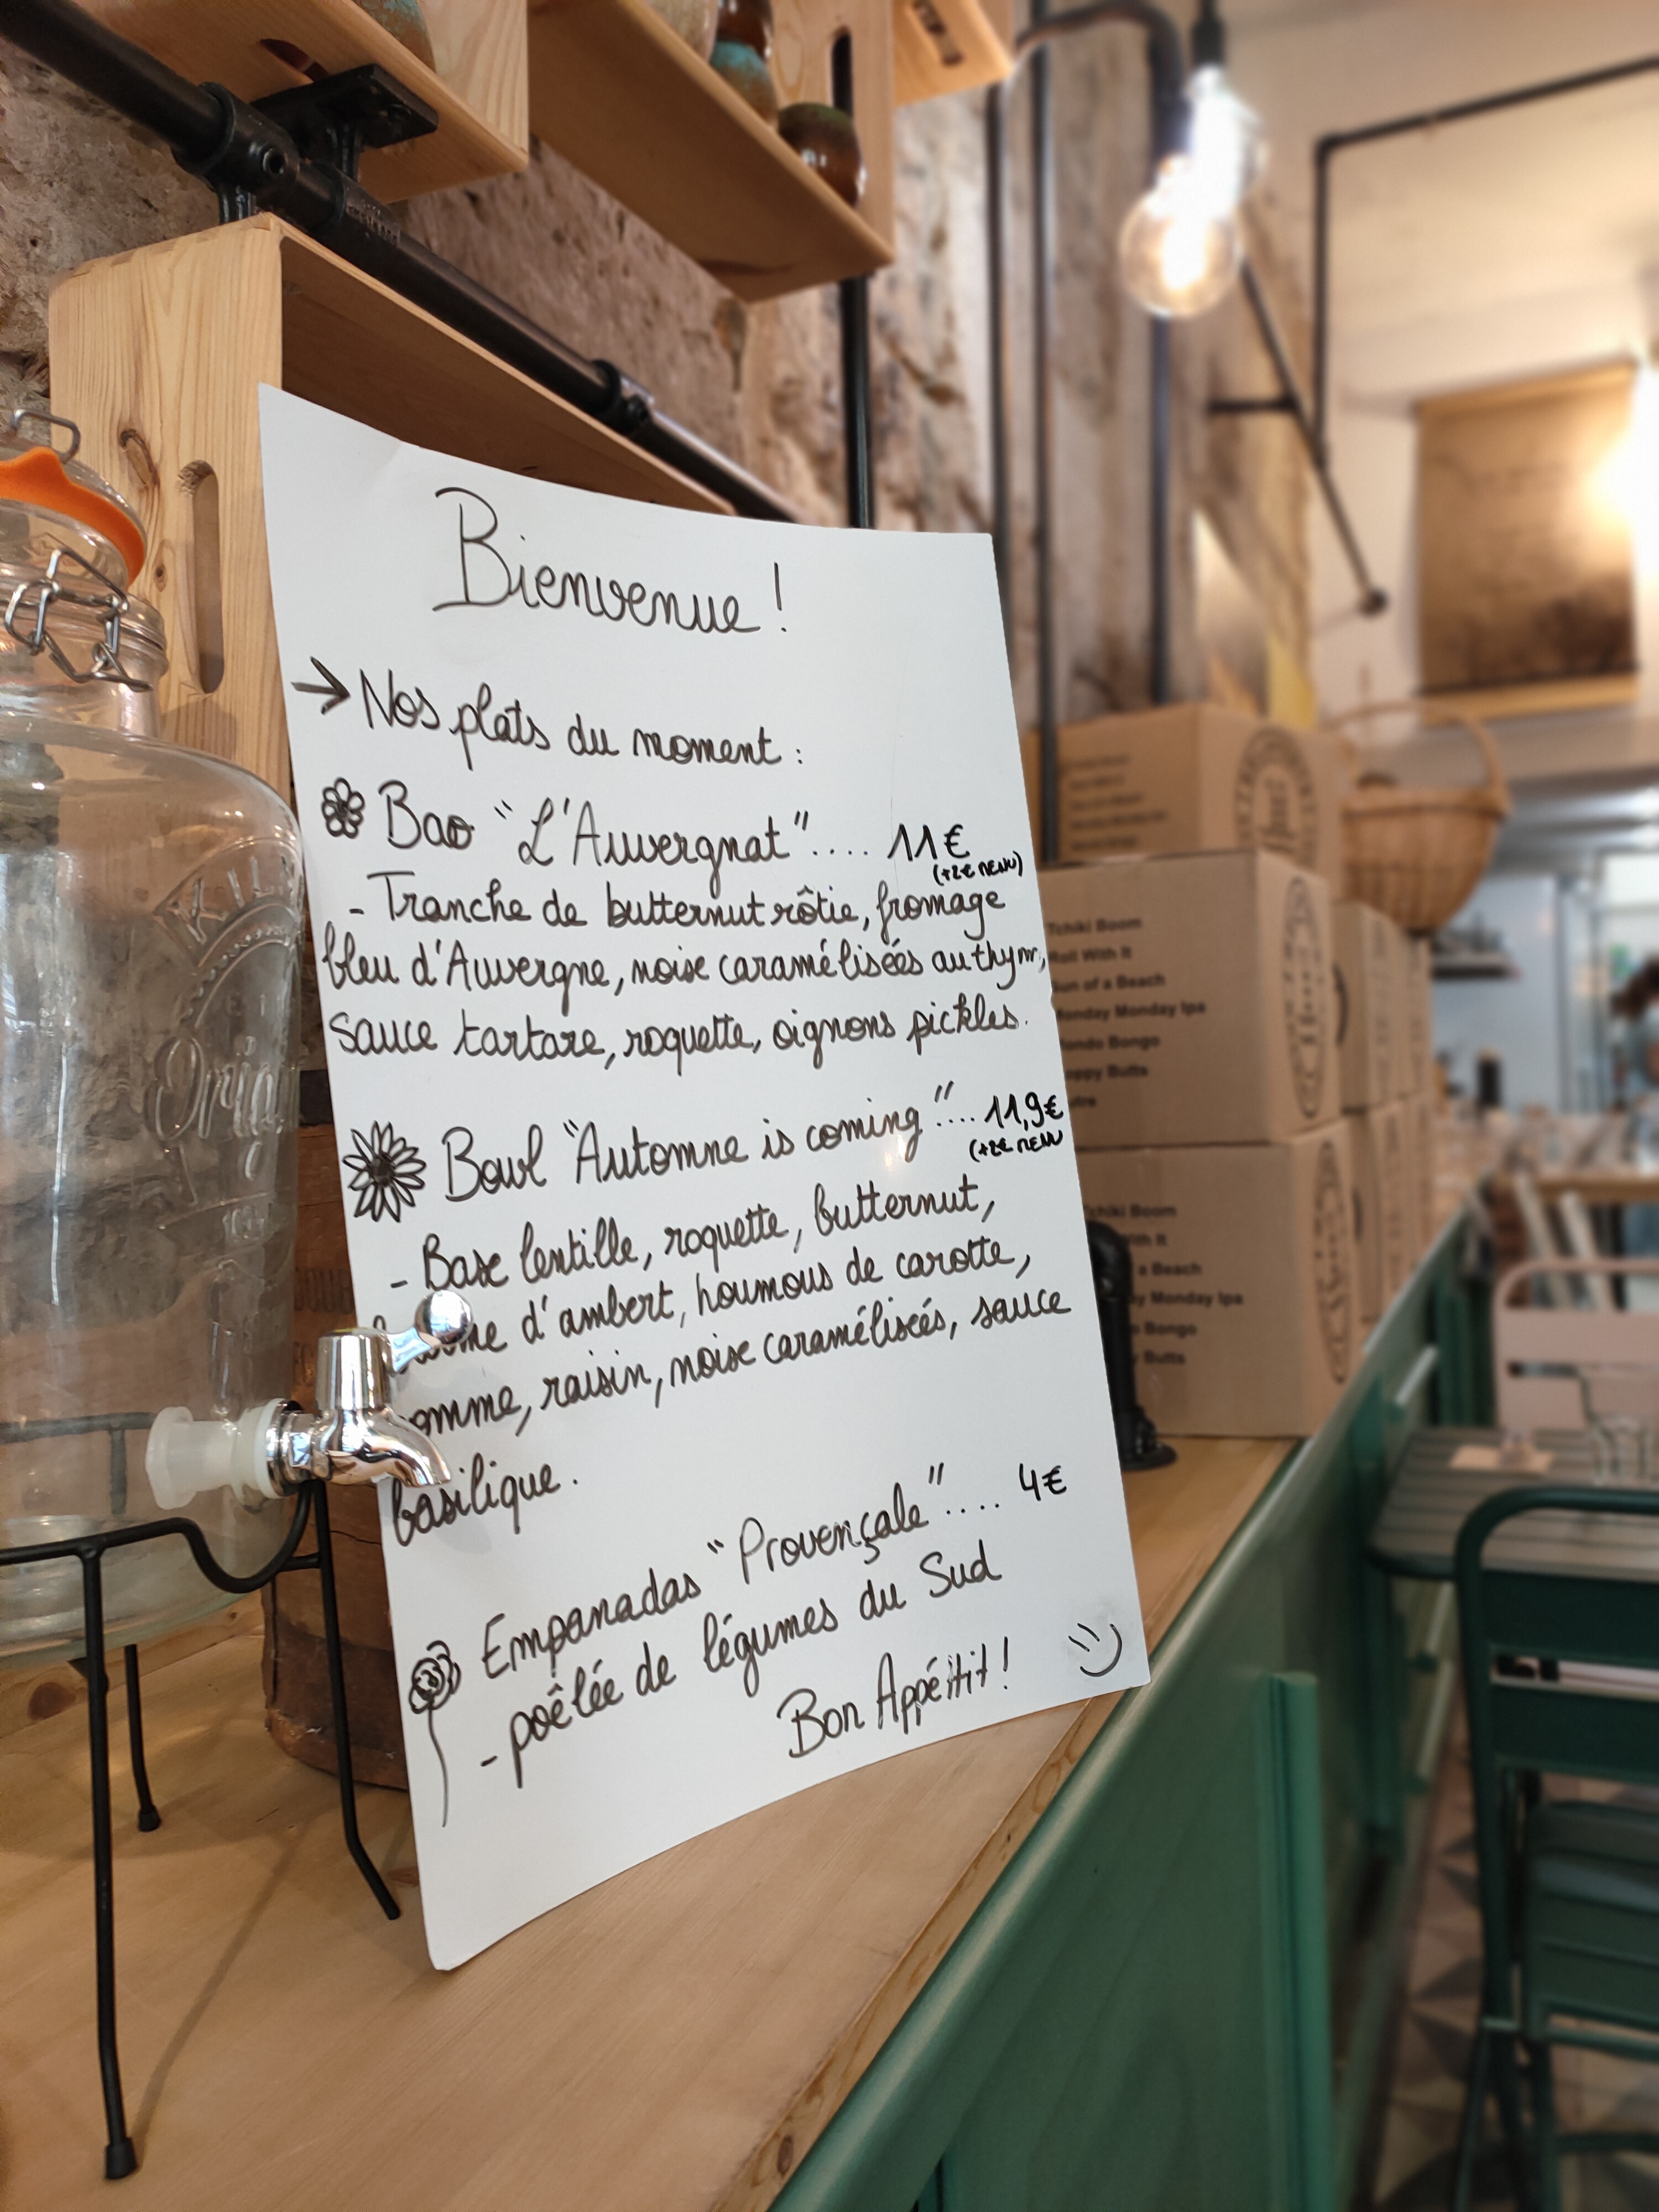 Bienvenue !
→ Nos plats du moment :
Bao "L'Auvergnat".... 11€
(+2€ MENU)
- Tranche de butternut rôtie, fromage
bleu d'Auvergne, noise caramélisées au thym,
sauce tartare, roquette, oignons pickles.
Bowl "Automne is coming".... 11,9€
(+2€ MENU
- Base lentille, roquette, butternut,
d'ambert, houmous de carotte,
omme, raisin, noise caramélisées, sauce
basilique.
Empanadas "Provençale".... 4€
- poêlée de légumes du Sud
Bon Appétit !
KIL
Orig
Tchiki Boom
Roll With It
un of a Beach
onday Monday Ipa
ondo Bongo
oppy Butts
chiki Boom
With It
a Beach
y Monday Ipa
o Bongo
y Butts